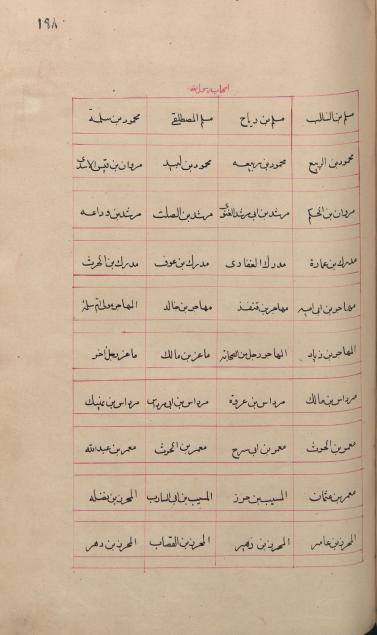 ١٩٨
اصحاب رسول الله
مسلم بن السائب مسلم بن رياح مسلم المصطلقى محمود بن سلمة
محمود بن الربيع محمود بن ربيعه محمود بن لبيد مروان بن قيس الاسدى
مروان بن الحكم مرثد بن ابى مرثد الغنوى مرثد بن الصلت مرثد بن وداعه
مدرك بن عمارة مدرك الغفارى مدرك بن عوف مدرك بن الحرث
مهاجر بن ابى اميه مهاجر بن قنفذ مهاجر بن خالد المهاجر مولى ام سلمة
المهاجر بن زياد المهاجر رجل من الصحابة ماعز بن مالك ماعز رجل آخر
مرداس بن مالك مرداس بن عروة مرداس بن مرداس بن نهيك
معمر بن الحرث معمر بن ابى سرح معمر بن الحرث معمر بن عبدالله
معمر بن عثمان المسيب بن حزن المسيب بن ابى السائب المحرز بن نضله
المحرز بن عامر المحرز بن زهير المحرز بن القصاب المحرز بن دهر